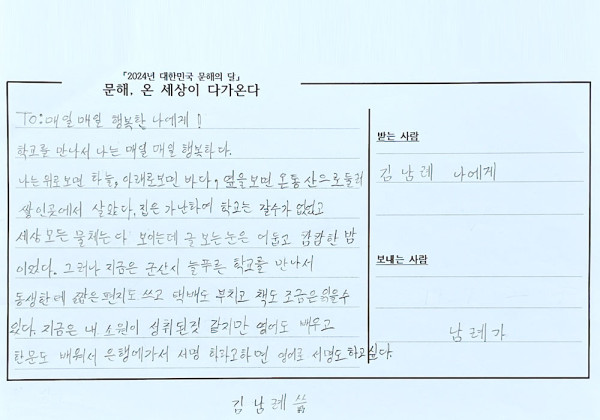 「2024년 대한민국 문해의 달」
문해, 온 세상이 다가온다
To: 매일 매일 행복한 나에게!
학교를 만나서 나는 매일 매일 행복하다.
나는 위로보면 하늘, 아래로보면 바다, 옆을보면 온통 산으로 둘러
쌓인곳에서 살았다. 집은 가난하여 학교는 갈수가 없었고
세상 모든 물체는 다 보이는데 글 보는 눈은 어둡고 캄캄한 밤
이었다. 그러나 지금은 군산시 늘푸른 학교를 만나서
동생한테 짧은 편지도 쓰고 택배도 부치고 책도 조금은 읽을수
있다. 지금은 내 소원이 성취된것 같지만 영어도 배우고
한문도 배워서 은행에가서 서명 하라고하면 영어로 서명도 하고싶다.
받는 사람
김남례 나에게
보내는 사람
남례가
김남례 씀